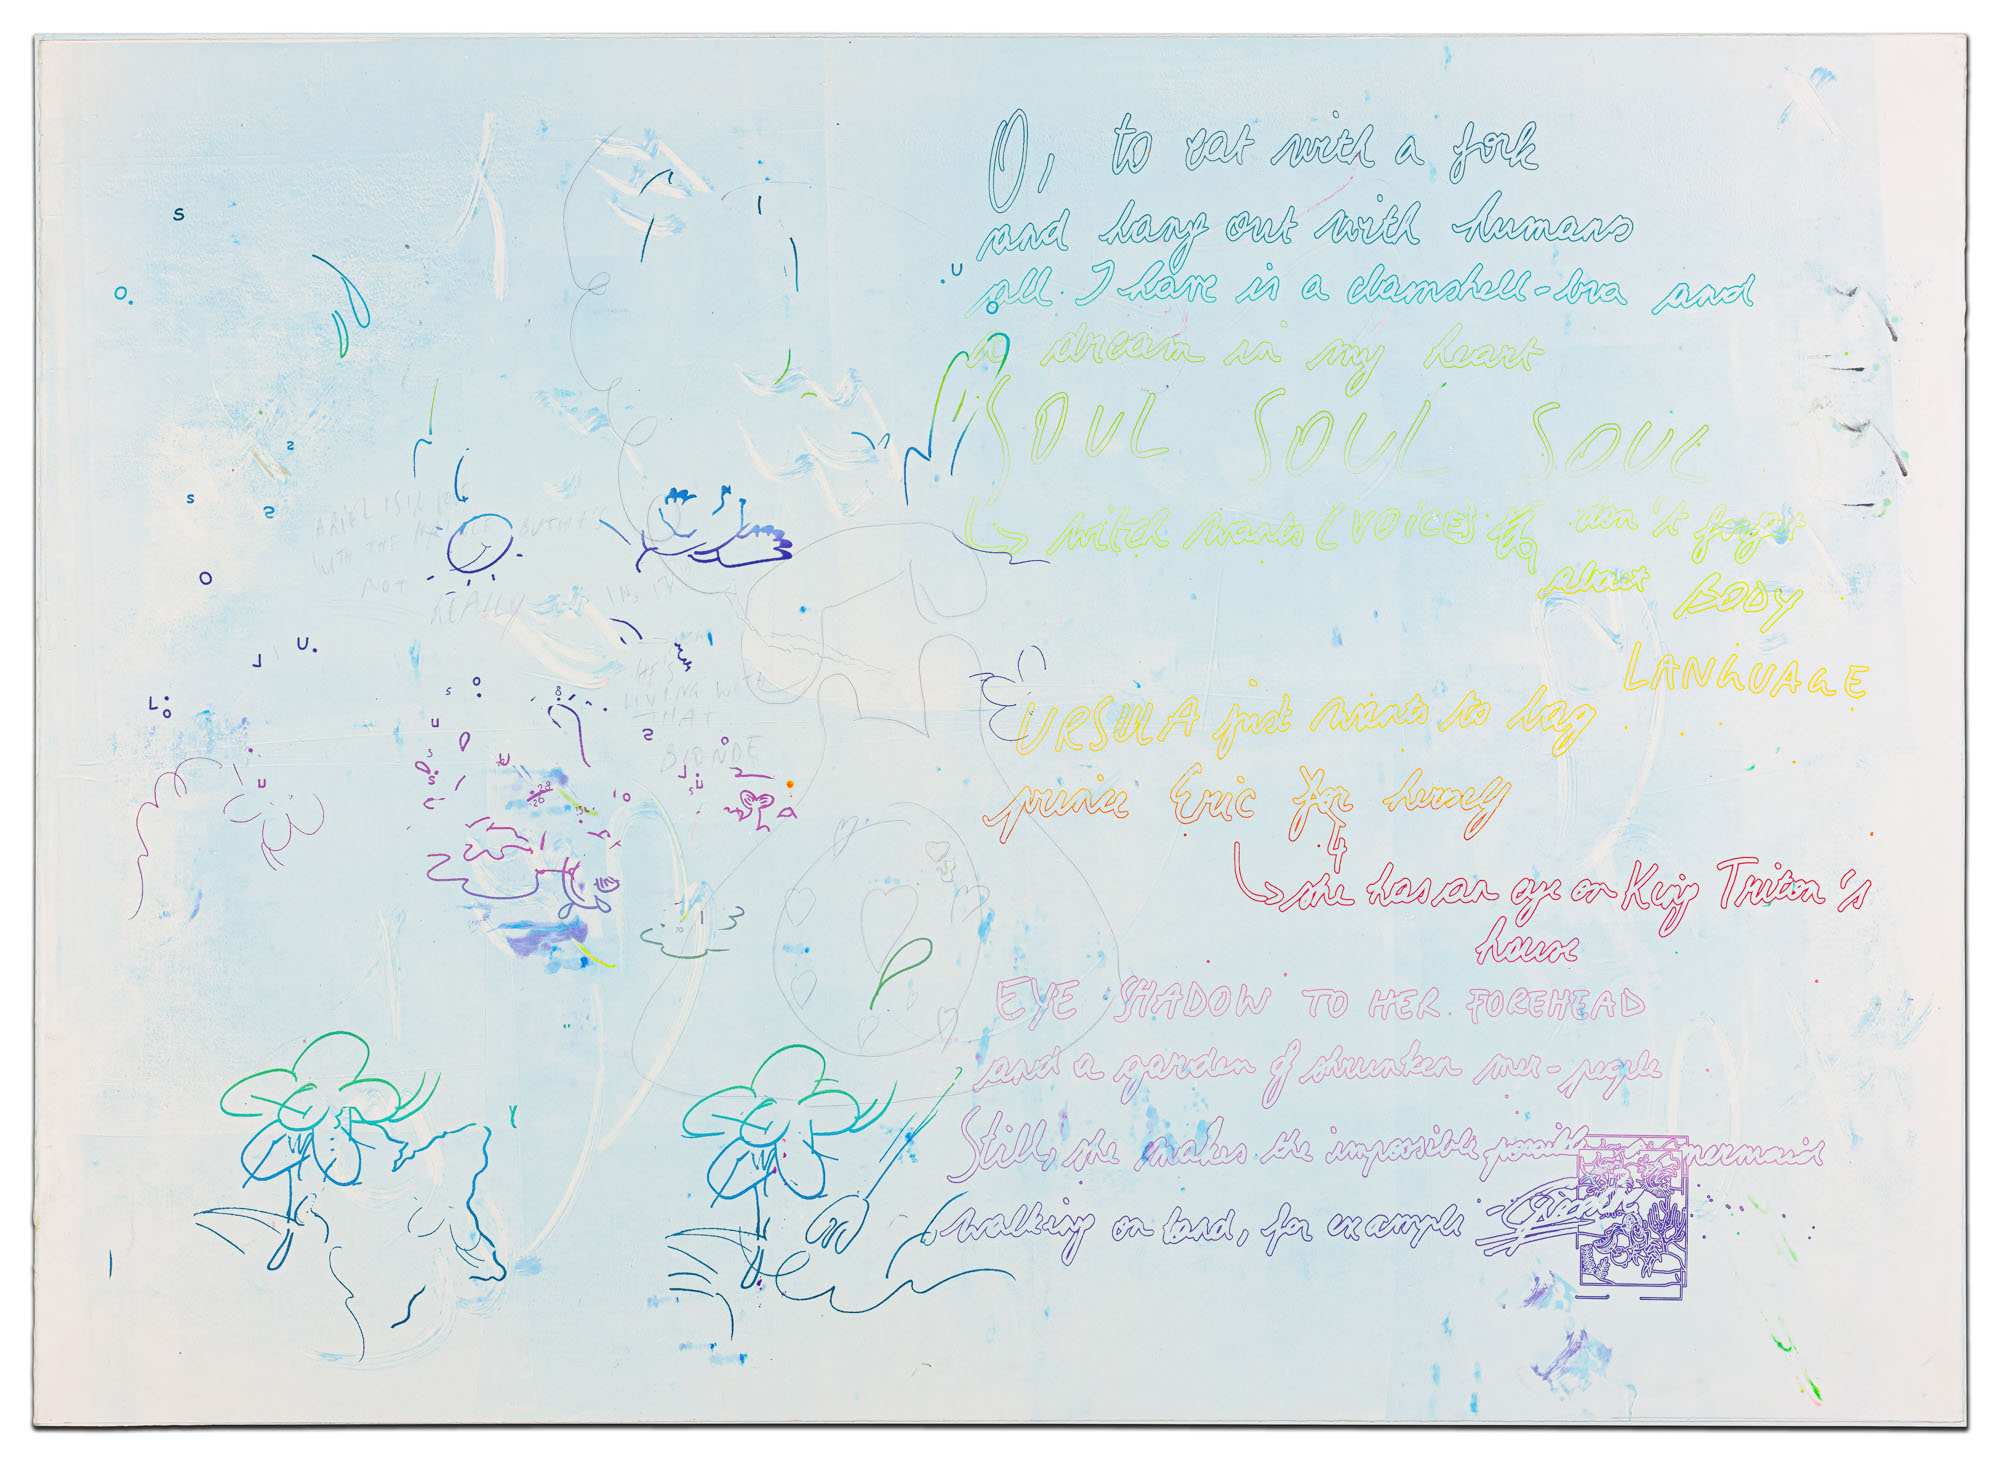 O, to eat with a fork
and hang out with humans
all I have is a clamshell-bra and
a dream in my heart
SOUL SOUL SOUL
witch wants (VOICES) don't forget
about BODY
LANGUAGE
URSULA just wants to bag
prince Eric for herself
she has an eye on King Triton's
house
EYE SHADOW TO HER FOREHEAD
and a garden of shrunken mer-people
Still, she makes the impossible possible mermaid
walking on land, for example -
ARIEL IS IN LOVE
WITH THE BUTHES
NOT
REALLY
HE'S
LIVING WITH
THAT
BLONDE